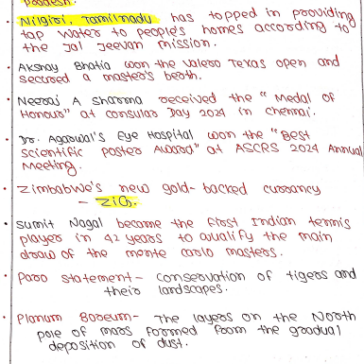 Pradesh.
• Nilgiri, Tamilnadu has topped in providing
tap water to people's homes according to
the Jal Jeevan mission.
• Akshay Bhatia won the Valero Texas open and
secured a master's berth.
• Neeraj A Sharma received the "Medal of
Honour" at consular Day 2024 in chennai.
• Dr. Agarwal's Eye Hospital won the "Best
scientific poster Award" at ASCRS 2024 Annual
Meeting.
• Zimbabwe's new gold-backed currancy
- ZiG.
• Sumit Nagal became the first Indian tennis
player in 42 years to qualify the main
draw of the monte carlo masters.
• Paro statement - conservation of tigers and
their landscapes.
• Planum Boreum - The layers on the North
pole of mars formed from the gradual
deposition of dust.